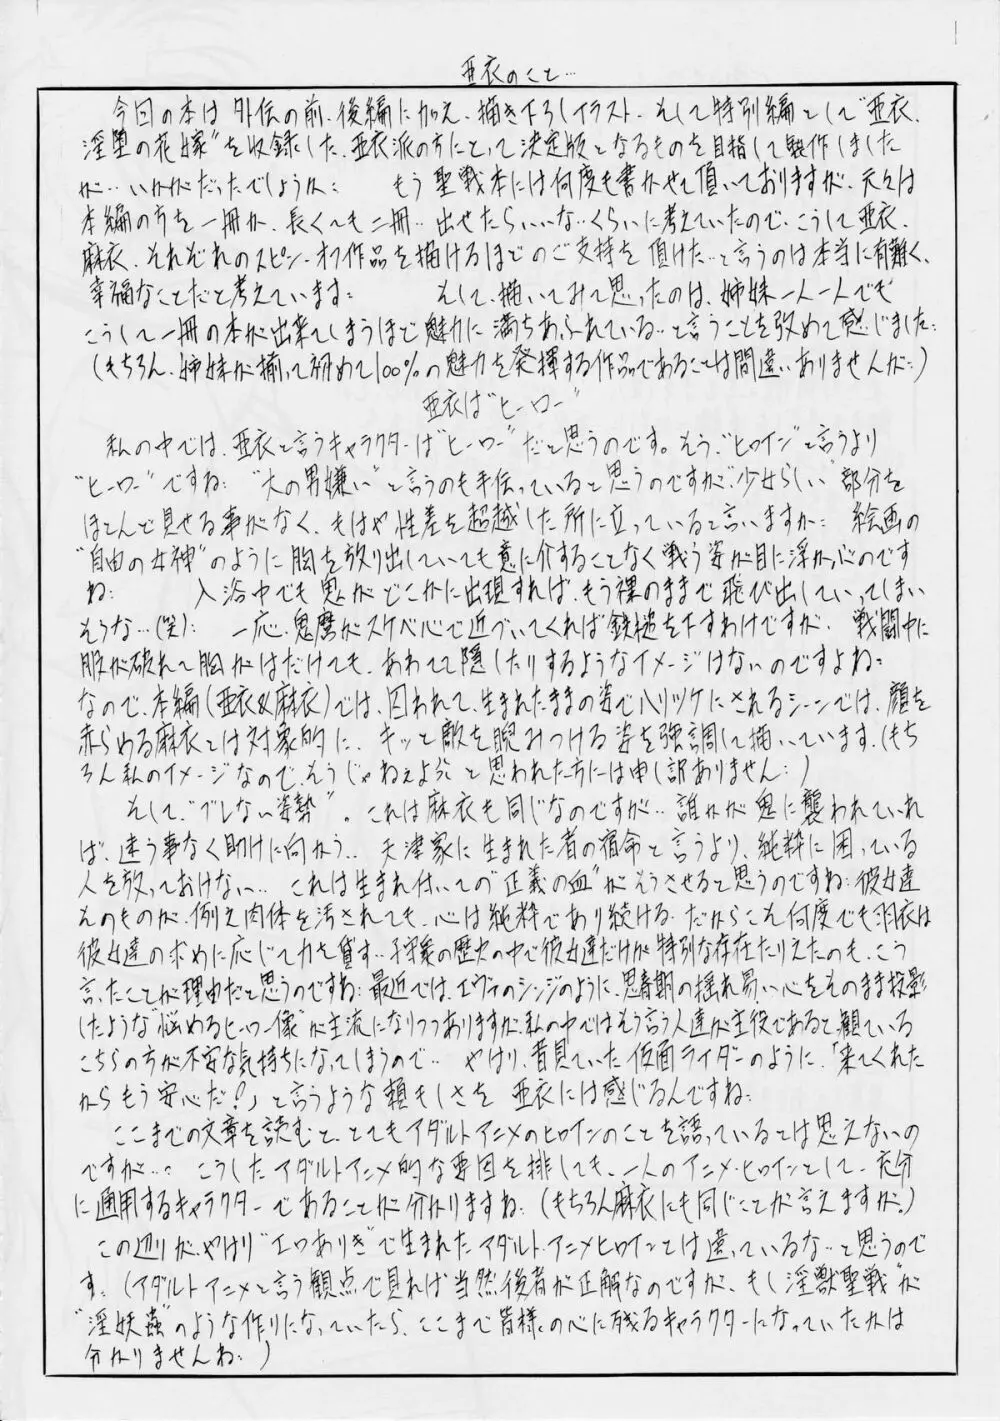 亜衣のこと…
今回の本は外伝の前、後編に加え、描き下ろしイラスト、そして特別編として"亜衣、
淫堕の花嫁"を収録した、亜衣派の方にとって決定版となるものを目指して製作しました
が…いかがだったでしょうか… もう聖戦本には何度も書かせて頂いておりますが、元々は
本編の方を一冊か、長くても二冊…出せたらいいな…くらいに考えていたので、こうして亜衣、
麻衣、それぞれのスピン・オフ作品を描けるほどのご支持を頂けた…と言うのは本当に有難く、
幸福なことだと考えています… そして、描いてみて思ったのは、姉妹一人一人でも
こうして一冊の本が出来てしまうほど魅力に満ちあふれている…と言うことを改めて感じました…
(もちろん、姉妹が揃って初めて100%の魅力を発揮する作品であることは間違いありませんが…)
亜衣は"ヒーロー"
私の中では、亜衣と言うキャラクターは"ヒーロー"だと思うのです。もう、"ヒロイン"と言うより
"ヒーロー"ですね… "大の男嫌い"と言うのも手伝っていると思うのですが、"少女らしい"部分を
ほとんど見せる事がなく、もはや性差を超越した所に立っていると言いますか… 絵画の
"自由の女神"のように胸を放り出していても意に介することなく戦う姿が目に浮かぶのです
ね… 入浴中でも鬼がどこかに出現すれば、もう裸のままで飛び出していってしまい
そうな…(笑)… 一応、鬼麿がスケベ心で近づいてくれば鉄槌を下すわけですが、戦闘中に
服が破れて胸がはだけても、あわてて隠したりするようなイメージはないのですよね…
なので、本編(亜衣&麻衣)では、囚われて、生まれたままの姿でハリツケにされるシーンでは、顔を
赤らめる麻衣とは対象的に、キッと敵を睨みつける姿を強調して描いています、(もち
ろん私のイメージなので、そうじゃねぇよ!と思われた方には申し訳ありません…)
そして、"ブレない姿勢"。これは麻衣も同じなのですが…誰かが鬼に襲われていれ
ば、迷う事なく助けに向かう… 天津家に生まれた者の宿命と言うより、純粋に困っている
人を放っておけない… これは生まれ付いての"正義の血"がそうさせると思うのですね…彼女達
そのものが、例え肉体を汚されても、心は純粋であり続ける…だからこそ何度でも羽衣は
彼女達の求めに応じて力を貸す…子守衆の歴史の中で彼女達だけが特別な存在たりえたのも、こう
言ったことが理由だと思うのですね… 最近では、エヴァのシンジのように、思春期の揺れ易い心をそのまま投影
したような"悩めるヒーロー像"が主流になりつつありますが、私の中ではそう言う人達が主役であると、観ている
こちらの方が不安な気持ちになってしまうので… やはり、昔見ていた仮面ライダーのように、「来てくれた
からもう安心だ!」と言うような頼もしさを亜衣には感じるんですね…
ここまでの文章を読むと、とてもアダルトアニメのヒロインのことを語っているとは思えないの
ですが…。 こうしたアダルトアニメ的な要因を排しても、一人のアニメ・ヒロインとして、充分
に通用するキャラクターであることが分かりますね…(もちろん麻衣にも同じことが言えますが。)
この辺りが、やはり"エロありき"で生まれたアダルト・アニメヒロインとは違っているな…と思うので
す…(アダルトアニメと言う観点で見れば当然後者が正解なのですが、もし"淫獣聖戦"が
"淫妖蟲"のような作りになっていたら、ここまで皆様の心に残るキャラクターになっていたかは
分かりませんね…)